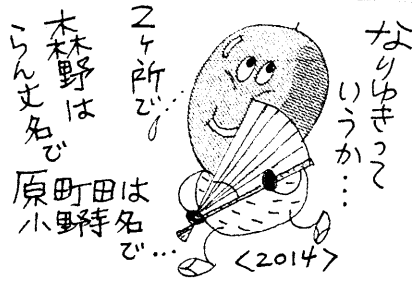 なりゆきって
いうか…
2ヶ所で…
森野は
らん丈名で
原町田は
小野寺名
で…
<2014>